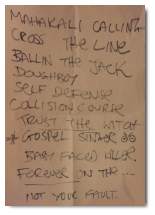 MAHAKALI CALLING
CROSS THE LINE
BALLIN THE JACK
DOUGHBOY
SELF DEFENSE
COLLISION COURSE
TRUST THE WITCH
GOSPEL SINGER
BABY FACED KILLER
FOREVER IN THE ...
NOT YOUR FAULT.